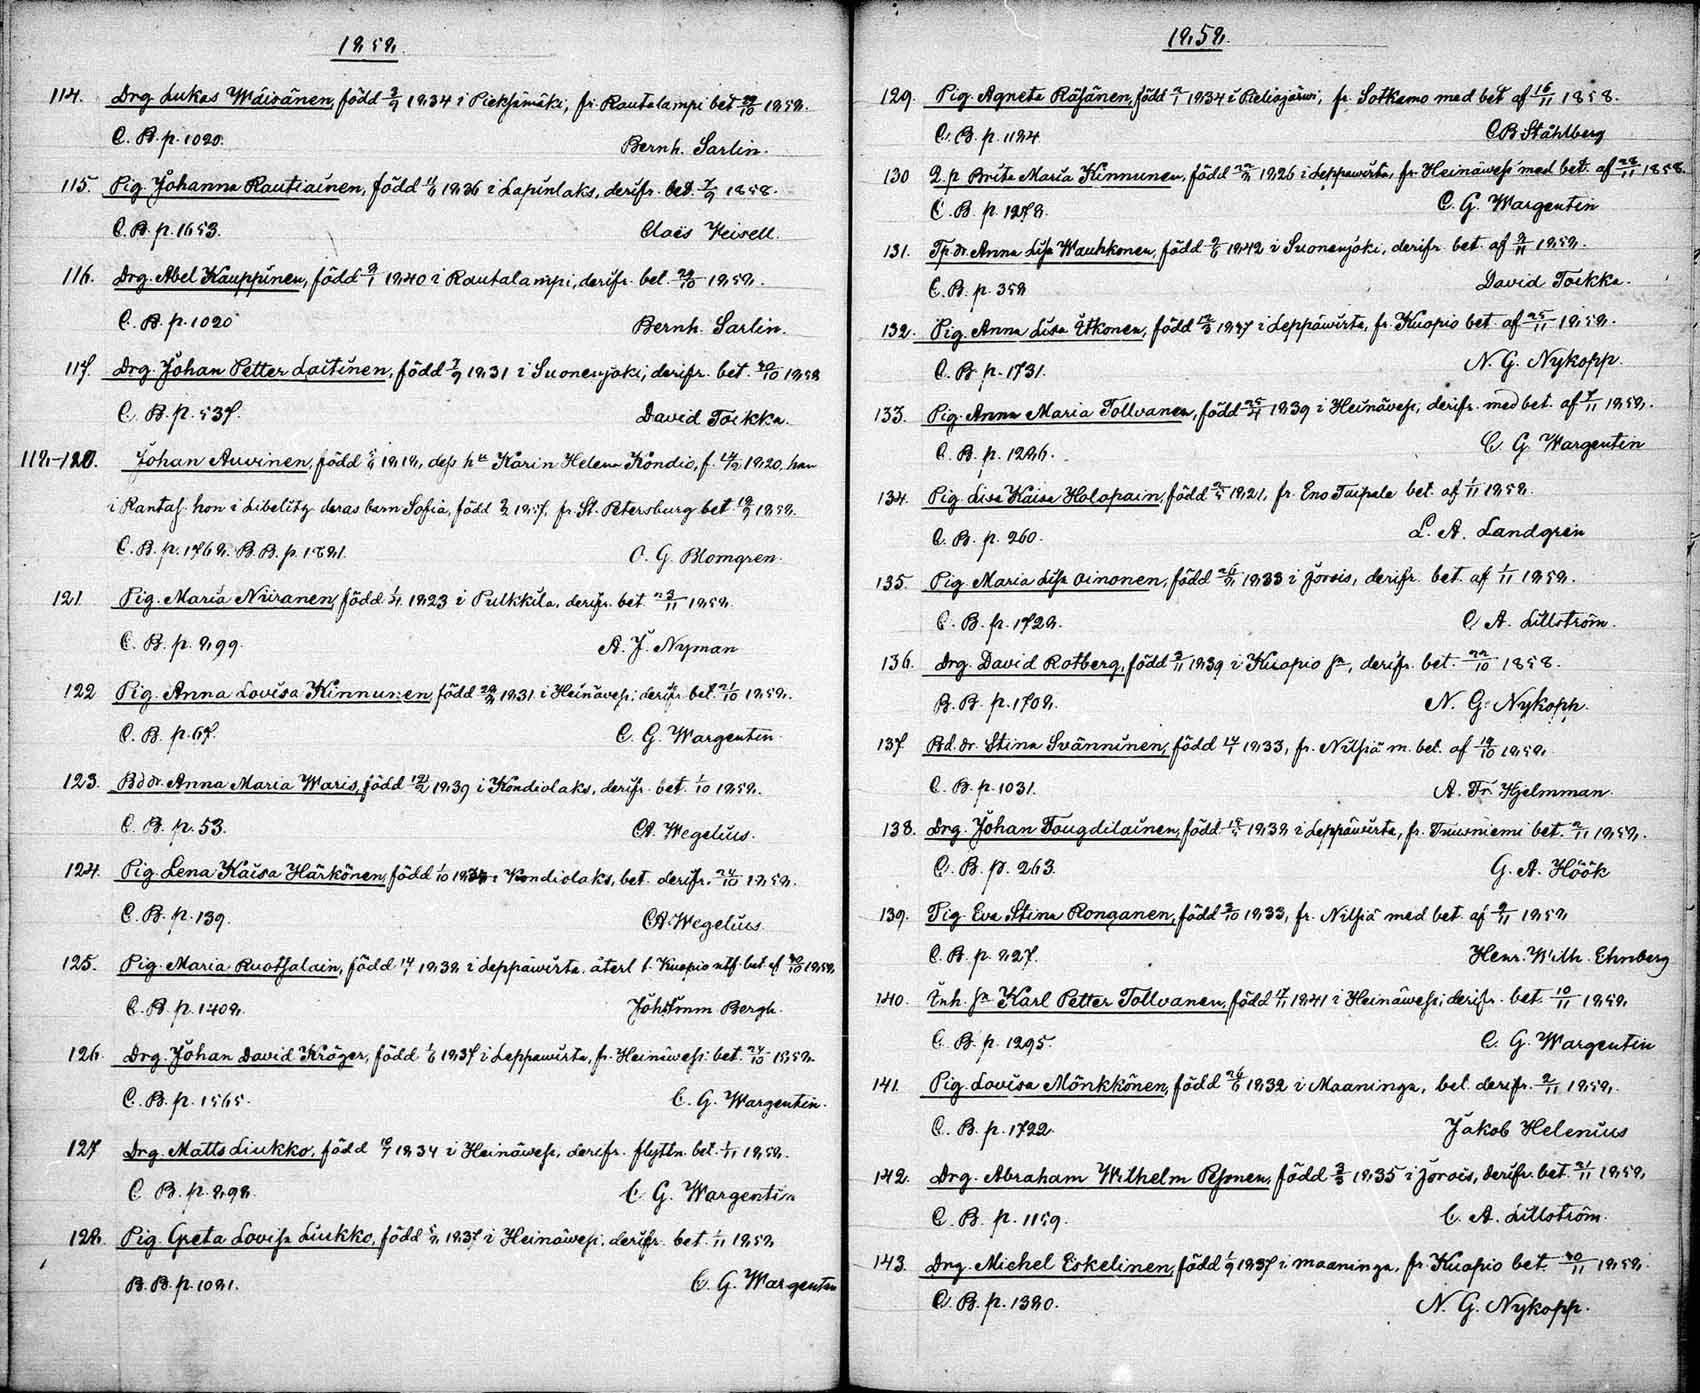 1858.
114. Drg. Lukas Wäisänen, född 2/9 1834 i Pieksämäki, fr. Rautalampi bet 1858.
C. B. p. 1020. Bernh. Sarlin.
115. Pig. Johanna Rautiainen, född 1836 i Lapinlaks, derifr. bet. 7/9 1858.
C. B. p. 1653. Claës Keisell.
116. Drg. Abel Kauppinen, född 1840 i Rautalampi, derifr. bet. 29/10 1858.
C. B. p. 1020 Bernh. Sarlin.
117. Drg. Johan Petter Laitinen, född 7/9 1831 i Suonenjoki, derifr. bet. 1858
C. B. p. 537. David Toikka.
118-120. Johan Auvinen, född 1818, dess hu Karin Helena Kondio, f. 1820, han
i Rantas. hon i Libelitz deras barn Sofia, född 1857, fr. St. Petersburg bet 18/9 1858.
C. B. p. 1768. B. B. p. 1821. O. G. Blomgren.
121 Pig. Maria Niiranen, född 1823 i Pulkkila, derifr. bet 23/11 1858.
C. B. p. 899. A. J. Nyman
122 Pig. Anna Lovisa Kinnunen född 1831 i Heinävesi, derifr. bet. 21/10 1858.
C. B. p. 67. C. G. Wargentin
123. Bddr. Anna Maria Waris, född 1839 i Kondiolaks, derifr. bet. 1/10 1858.
C. B. p. 53. CA. Wegelius.
124. Pig. Lena Kaisa Härkönen, född 1/10 i Kondiolaks, bet. derifr. 24/10 1858.
C. B. p. 139. CA. Wegelius
125. Pig. Maria Ruotsalain, född 1838 i Leppäwirta, återl t. Kuopio bet af 1858
C. B. p. 1408. Bergh.
126. Drg. Johan David Kröger, född 1/6 1837 i Leppäwirta, fr. Heinäwesi bet. 24/10 1858.
C. B. p. 1565. C. G. Wargentin.
127 Drg. Matts Liukko, född 1834 i Heinäwesi, derifr. flyttn. bet. 1/11 1858.
C B. p. 898. C G. Wargentin
128. Pig. Greta Lovisa Liukko, född 1837 i Heinäwesi, derifr. bet. 1/11 1858
B. B. p. 1081. C. G. Wargentin
1858.
129. Pig. Agneta Räsänen, född 2/1 1834 i Pielisjärwi, fr. Sotkamo med bet af 16/11 1858.
C. B. p. 1184 CB Ståhlberg
130 Q. p Brita Maria Kinnunen, född 1826 i Leppäwirta, fr. Heinäwesi med bet. af 28/11 1858.
C. B. p. 1278. C. G. Wargentin
131. Tp. dr. Anna Lisa Wauhkonen, född 1842 i Suonenjoki, derifr. bet. af 1858.
C. B. p. 358 David Toikka.
132. Pig. Anna Lisa Itkonen, född 1837 i Leppäwirta, fr. Kuopio bet af 25/11 1858.
C. B. p. 1731. N. G. Nykopp.
133. Pig. Anna Maria Tollvanen, född 1839 i Heinäwesi, derifr. med bet. af 7/11 1858.
C. B. p. 1286. C G. Wargentin
134. Pig. Lisa Kaisa Holopain, född 1821, fr. Eno Taipale bet. af 1/11 1858.
C. B. p. 260. L. A. Landgrén
135. Pig. Maria Lisa Oinonen, född 1833 i Jorois, derifr. bet. af 1/11 1858.
C. B. p. 1728. C A. Lillström.
136. Drg. David Rotberg, född 3/11 1839 i Kuopio derifr. bet. 22/10 1858.
B. B. p. 1708. N. G. Nykopp.
137 Bd. dr. Stina Svänninen, född 1833, fr. Nilsiä m. bet. af 18/10 1858
C. B. p. 1031. A. Fr. Hjelmman.
138. Drg. Johan Tougdilainen, född 1838 i Leppäwirta, fr. Tuusniemi bet. 2/11 1858.
C. B. p. 263. G. A. Höök
139. Pig. Eva Stina Ronganen, född 3/10 1833, fr. Nilsiä med bet. af 9/11 1858
C. B. p. 227. Henr. Wilh. Ehnberg
140. Inh. sn Karl Petter Tollvanen, född 1841 i Heinäwesi, derifr. bet. 10/11 1858
C. B. p. 1295. C. G. Wargentin
141. Pig. Lovisa Mönkkönen, född 26/6 1832 i Maaninga, bet. derifr. 9/11 1858.
C. B. p. 1722. Jakob Helenius
142. Drg. Abraham Wilhelm Pesonen, född 1835 i Jorois, derifr. bet. 21/11 1858,
C. B. p. 1159. C. A. Lillström.
143. Drg. Michel Eskelinen, född 1/9 1837 i maaninga, fr. Kuopio bet. 1858.
C. B. p. 1380. N. G. Nykopp.